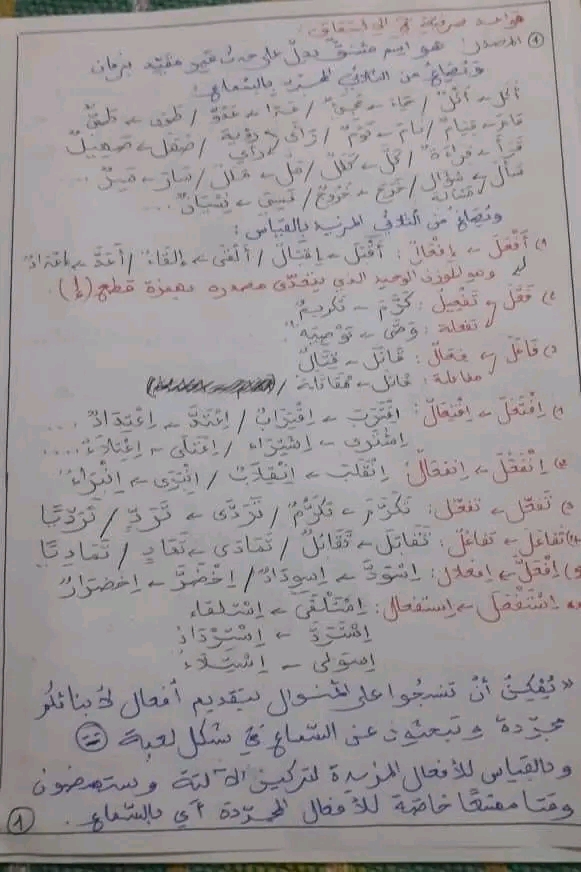 قواعد صرفية في الاشتقاق:
① المصدر: هو اسم مشتق يدل على حدث غير مقيد بزمان
ويُصاغ من الثلاثي المجرد بالسماع:
أكل ← أكْلٌ / / عدا ← عَدْوٌ /
قام ← قيام / نام ← نَوْمٌ / رأى ← رؤية / صهل ← صهيلٌ
رأي
قرأ ← قراءة /
سأل ← سؤال / خرج ← خروجٌ / نسي ← نسيان ...
ويُصاغ من الثلاثي المزيد بالقياس:
1) أَفْعَلَ ← إِفْعَالٌ: / ألقى ← إلقاءٌ / أعدَّ ← إعدادٌ
وهو الوزن الوحيد الذي يبتدئ مصدره بهمزة قطع (إ).
2) فَعَّلَ ← تفعيل: كَرَّمَ ← تكريمٌ
تفعلة: وصّى ← توصية
3) فَاعَلَ ← فِعَالٌ: قاتل ← قِتَالٌ
مفاعلة: قاتل ← مُقاتلة /
اِفْتَعَلَ ← اِفْتِعَالٌ: اِقْتَرَبَ ← اِقْتِرَابٌ / اِعْتَدَّ ← اِعْتِدَادٌ ...
اشترى ← اِشْتِرَاء / اِعْتَلَى ← اِعْتِلَاءٌ ....
اِنْفَعَلَ ← اِنفعالٌ: اِنْقَلَبَ ← اِنْقِلَابٌ / اِنْبَرَى ← اِنْبِرَاءٌ
تَفَعَّلَ ← تفعُّل: تَكَرَّمَ ← تَكَرُّمٌ / تَرَدَّى ← تَرَدٍّ / تَرَدِّيًا
تَفَاعَلَ ← تَفَاعُلٌ: تَقَاتَلَ ← تَقَاتُلٌ / تَمَادَى ← تَمَادٍ / تَمَادِيًا
اِفْعَلَّ ← اِفعلال: اِسْوَدَّ ← اِسْوِدَادٌ / اِخْضَرَّ ← اِخضرارٌ
اِسْتَفْعَلَ ← اِستفعال: اِسْتَلْقَى ← اِسْتلقاء
اِسْتَرَدَّ ← اِسْتِرْدَادٌ
← اِسْتِيلَاءٌ
« يُمْكِنُ أنْ تنسجُوا على المنوال بتقديم أفعال لأبنائكم
مجرّدة وتبحثون عن السّماع في شكل لعبة
وبالقياس للأفعال المزيدة لتركيز الآلية وستمضون
وقتا ممتعًا خاصّة للأفعال المجرّدة أي بالسّماع.
①